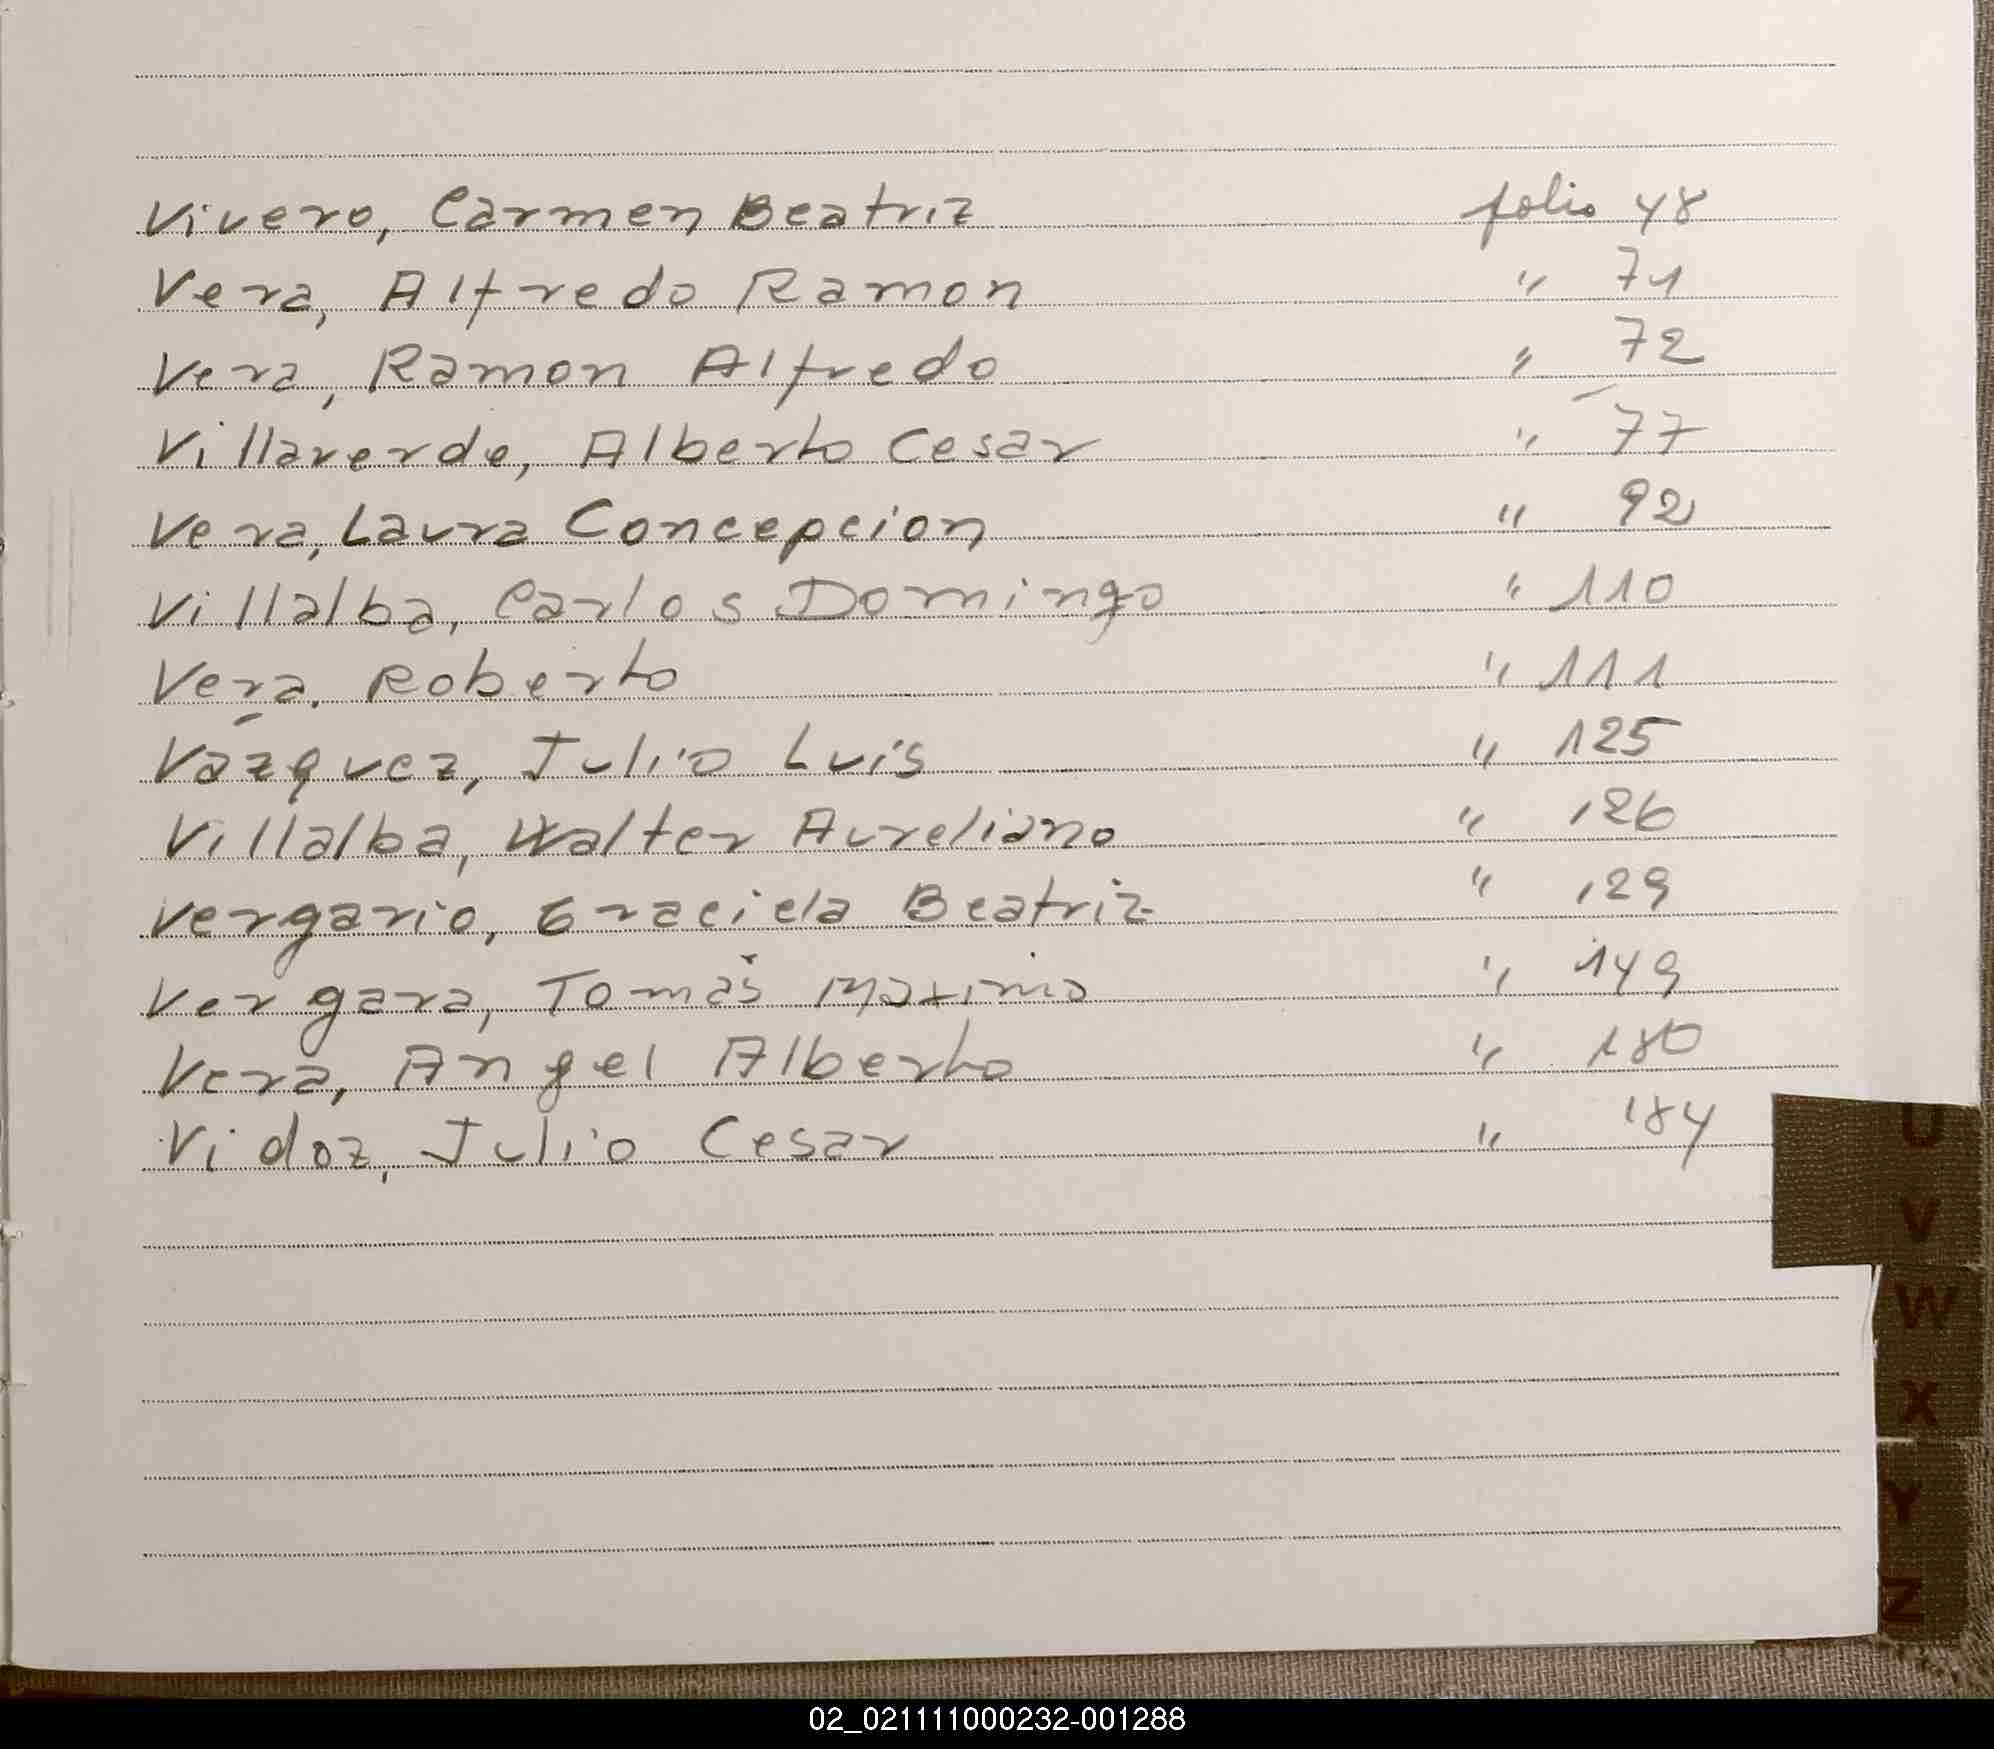 Vivero, Carmen Beatriz folio 48
Vera, Alfredo Ramon " 71
Vera, Ramon Alfredo " 72
Villaverde, Alberto Cesar " 77
Vera, Laura Concepcion " 92
Villalba, Carlos Domingo " 110
Vera, Roberto " 111
Vázquez, Julio Luis " 125
Villalba, Walter Aureliano " 126
Vergario, Graciela Beatriz " 129
Vergara, Tomás Maximo " 149
Vera, Angel Alberto " 180
Vidoz, Julio Cesar " 184
U
V
W
X
Y
Z
02_021111000232-001288